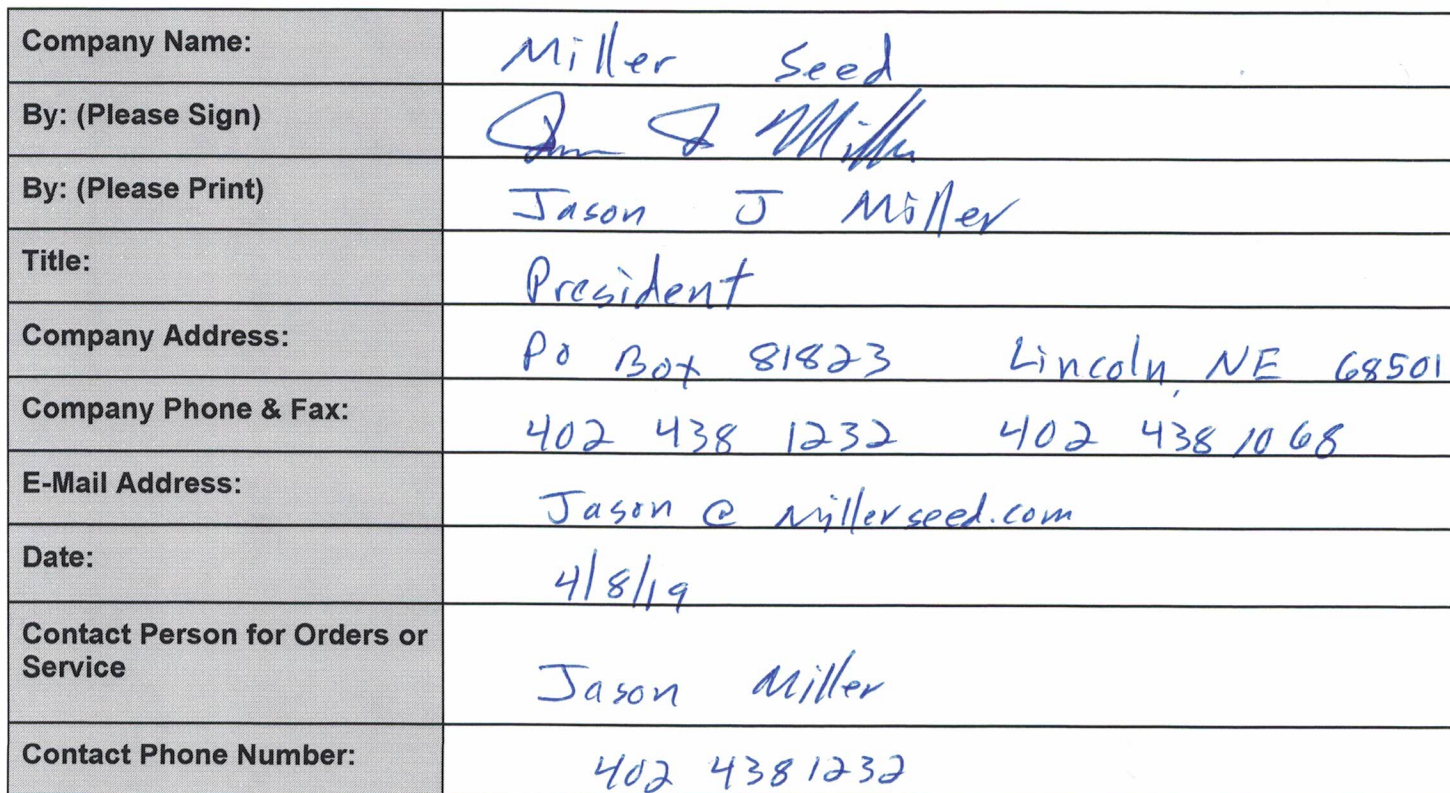 Company Name: Miller Seed
By: (Please Sign) J Miller
By: (Please Print) Jason J Miller
Title: President
Company Address: Po Box 81823 Lincoln, NE 68501
Company Phone & Fax: 402 438 1232 402 438 1068
E-Mail Address: Jason @ millerseed.com
Date: 4/8/19
Contact Person for Orders or
Service Jason Miller
Contact Phone Number: 402 438 1232